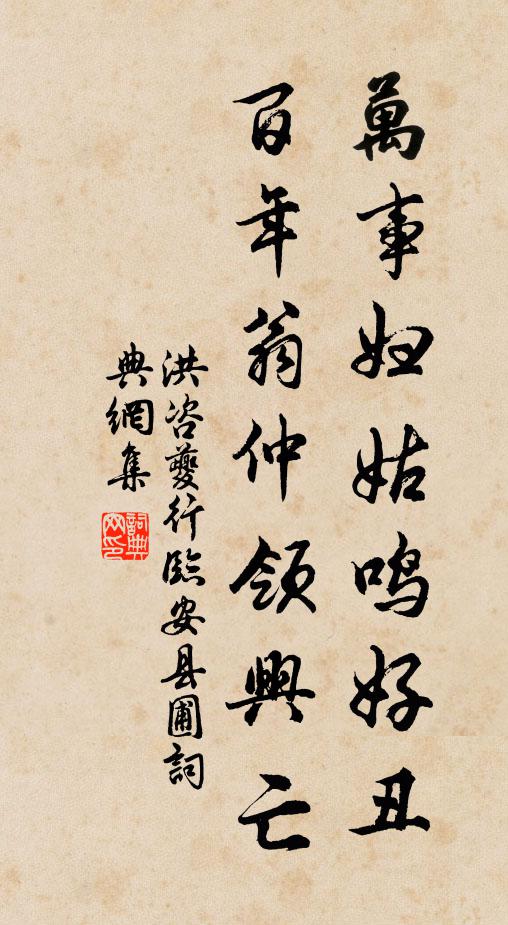 萬事妇姑鳴好丑
百年翁仲領興亡
洪咨夔行臨安县圃詞
典網集
詞典
网印